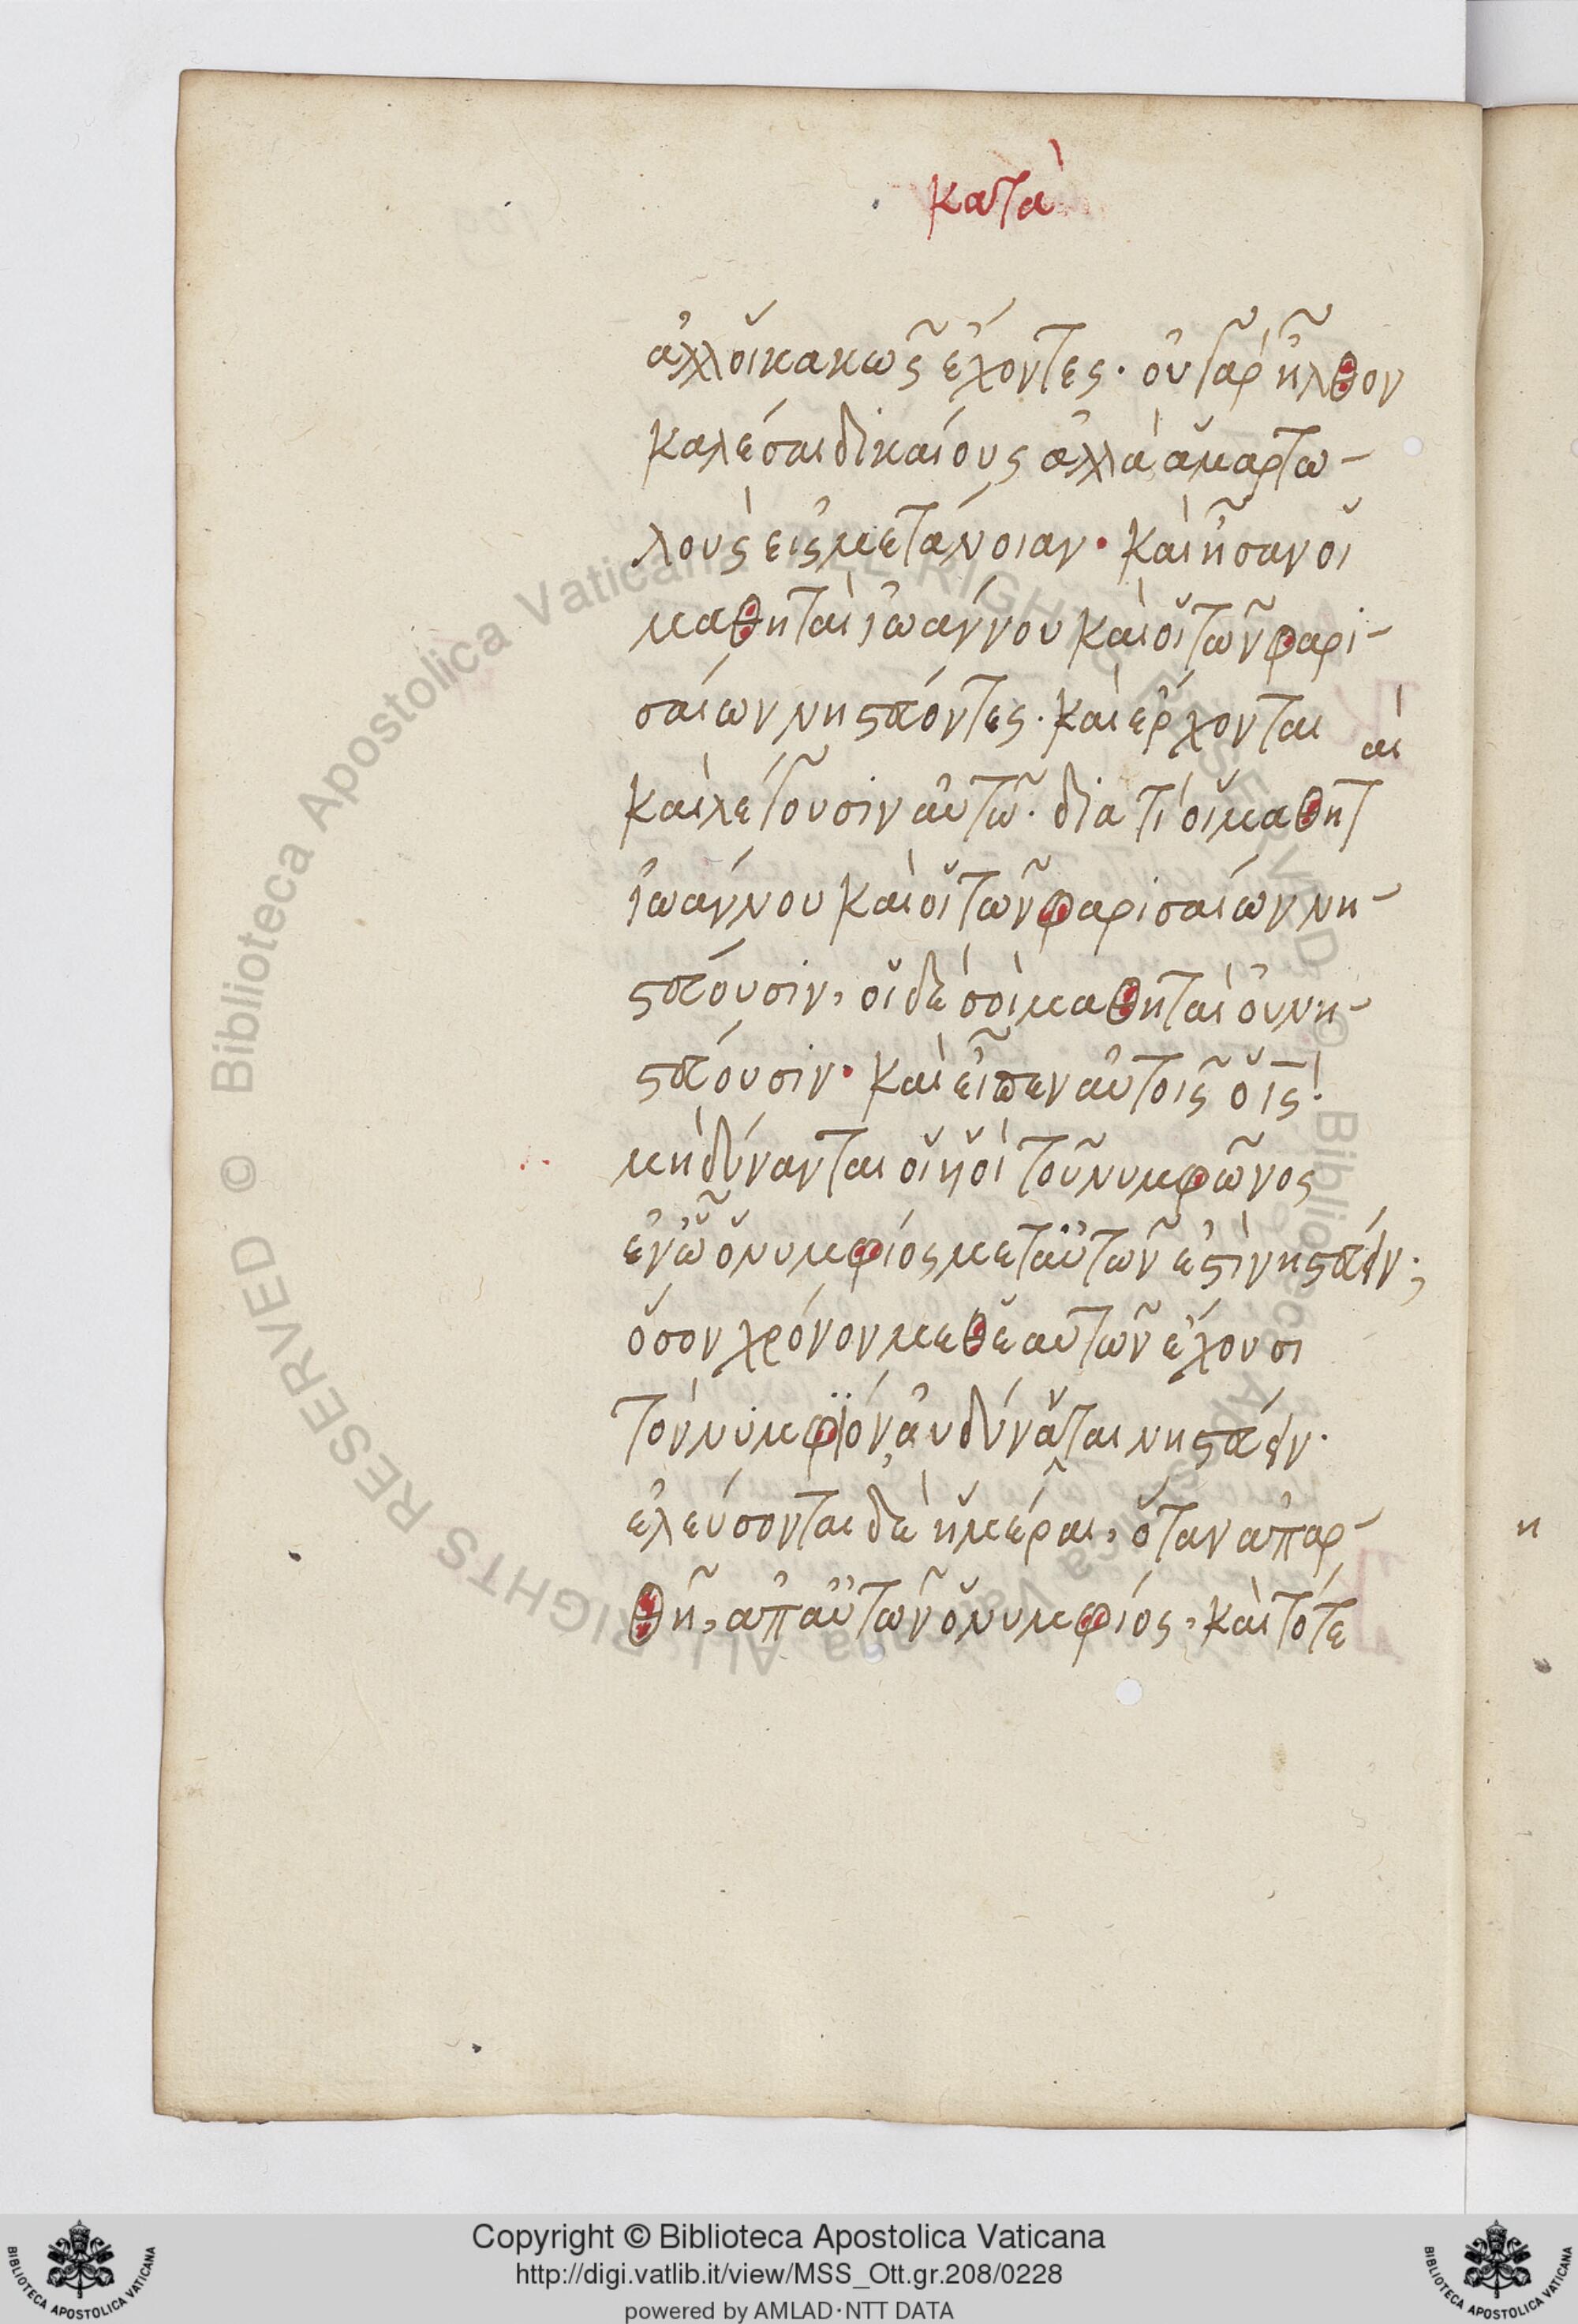 κατὰ
ἀλλ' οἱ κακῶς ἔχοντες· οὐ γὰρ ἦλθον
καλέσαι δικαίους ἀλλὰ ἁμαρτω-
λοὺς εἰς μετάνοιαν· καὶ ἦσαν οἱ
μαθηταὶ ἰωάννου καὶ οἱ τῶν φαρι-
σαίων νηστεύοντες· καὶ ἔρχονται
καὶ λέγουσιν αὐτῷ· διὰ τί οἱ μαθηταὶ
ἰωάννου καὶ οἱ τῶν φαρισαίων νη-
στεύουσιν, οἱ δὲ σοὶ μαθηταὶ οὐ νη-
στεύουσιν· καὶ εἶπεν αὐτοῖς ὁ ις·
μὴ δύνανται οἱ ηοὶ τοῦ νυμφῶνος
ἐν ᾧ ὁ νυμφίος μετ' αὐτῶν ἐστὶ νηστεύειν;
ὅσον χρόνον μεθ' ἑαυτῶν ἔχουσι
τὸν νυμφίον, οὐ δύναται νηστεύειν·
ἐλεύσονται δὲ ἡμέραι, ὅταν ἀπαρ-
θῇ, ἀπ' αὐτῶν ὁ νυμφίος, καὶ τότε
Copyright © Biblioteca Apostolica Vaticana
http://digi.vatlib.it/view/MSS_Ott.gr.208/0228
powered by AMLAD·NTT DATA
BIBLIOTECA APOSTOLICA VATICANA
BIBLIOTECA APOSTOLICA VATICANA
© Biblioteca Apostolica Vaticana ALL RIGHTS RESERVED
© Biblioteca Apostolica Vaticana ALL RIGHTS RESERVED